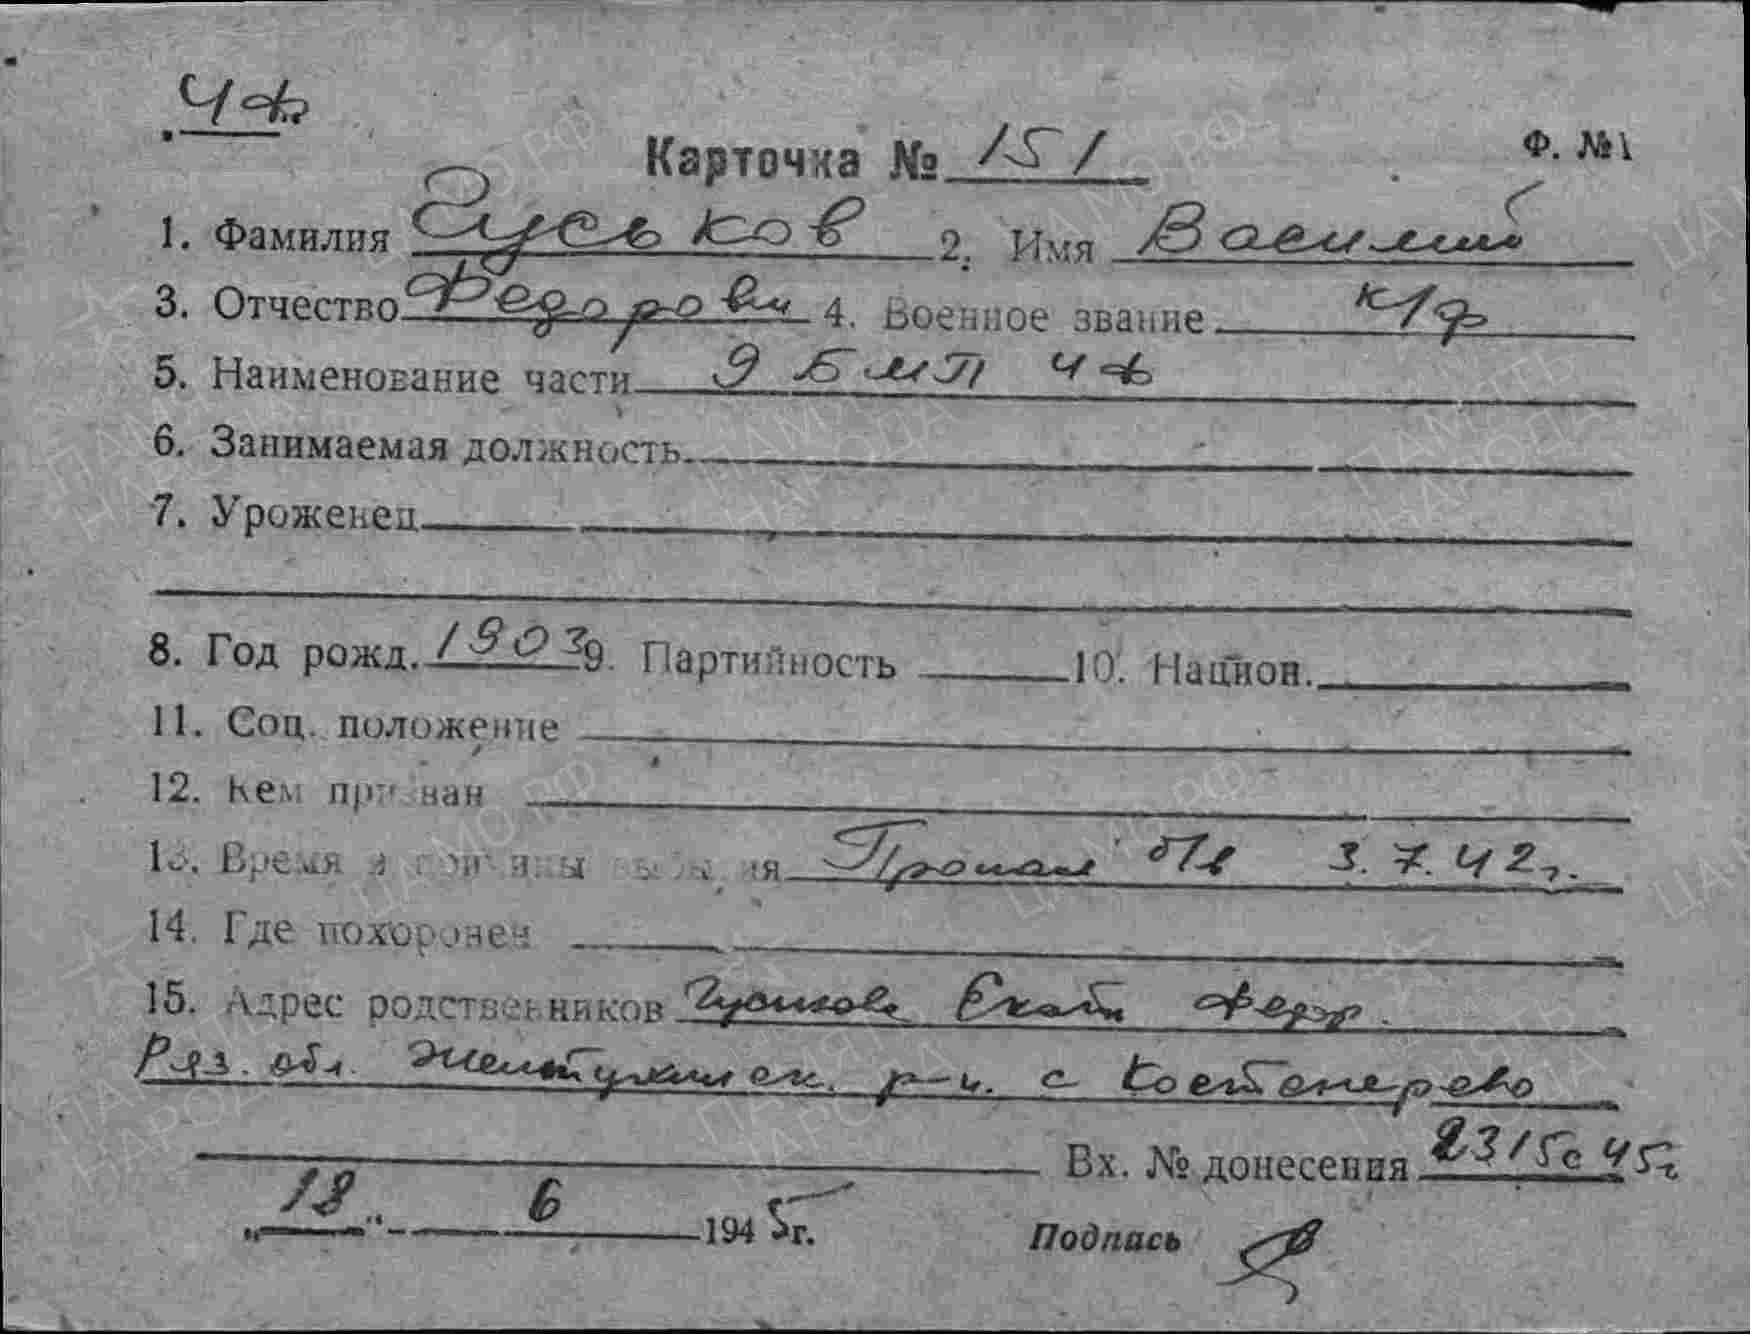 ЧФ
Карточка № 151 Ф. №1
1. Фамилия Гуськов 2. Имя Василий
3. Отчество Федорович 4. Военное звание к/ф
5. Наименование части 9 БМП ЧФ
6. Занимаемая должность
7. Уроженец
8. Год рожд. 1903 9. Партийность 10. Национ.
11. Соц. положение
12. Кем призван
13. Время и причины выбытия Пропал б/в 3.7.42г.
14. Где похоронен
15. Адрес родственников Гуськова Екат Федор.
Ряз. обл. Желтухинск. р-н. с
Вх. № донесения 2315с 45г
„18“ 6 1945г. Подпись